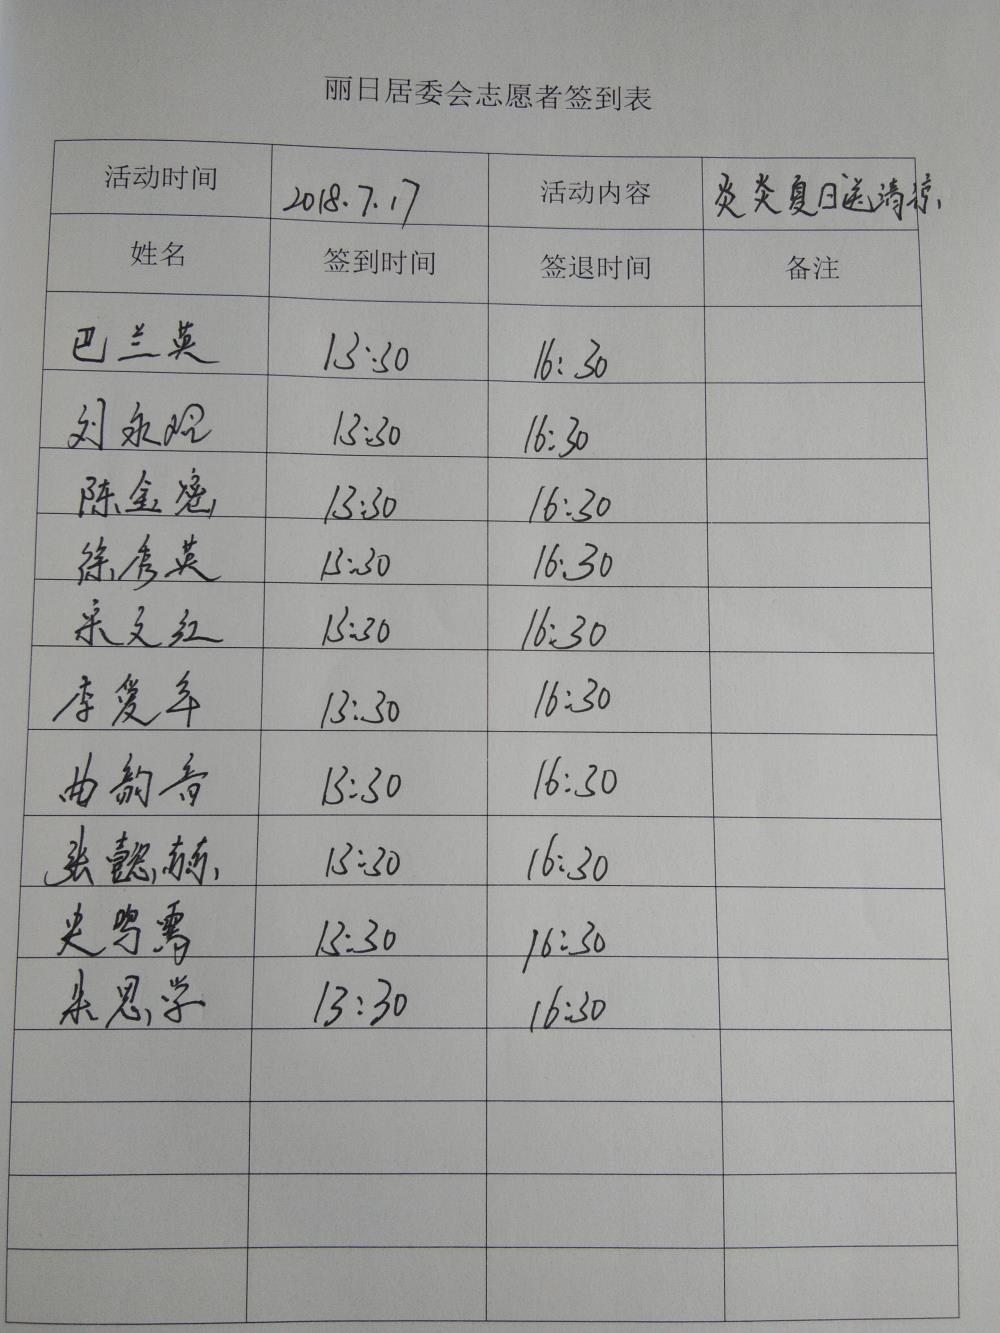 丽日居委会志愿者签到表
活动时间 2018.7.17 活动内容 炎炎夏日送清凉
姓名 签到时间 签退时间 备注
巴兰英 13:30 16:30
刘永 13:30 16:30
陈金 13:30 16:30
徐秀英 13:30 16:30
宋文红 13:30 16:30
李爱年 13:30 16:30
曲韵音 13:30 16:30
张懿赫 13:30 16:30
13:30 16:30
朱思学 13:30 16:30